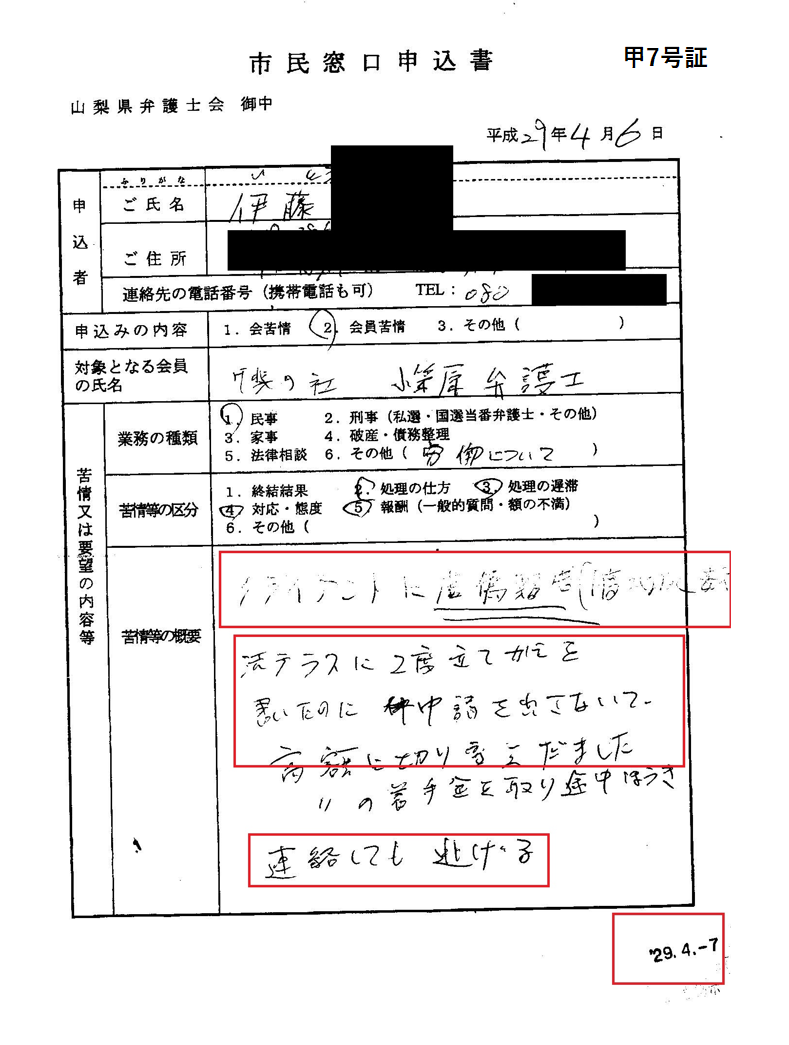 市民窓口申込書
甲7号証
山梨県弁護士会 御中
平成29年4月6日
申込者
ふりがな
ご氏名 伊藤
ご住所
連絡先の電話番号(携帯電話も可) TEL:080
申込みの内容 1.会苦情 2.会員苦情 3.その他( )
対象となる会員の氏名 の社 小笠原弁護士
苦情又は要望の内容等
業務の種類
1.民事 2.刑事(私選・国選当番弁護士・その他)
3.家事 4.破産・債務整理
5.法律相談 6.その他(労働について )
苦情等の区分
1.終結結果 2.処理の仕方 3.処理の遅滞
4.対応・態度 5.報酬(一般的質問・額の不満)
6.その他( )
苦情等の概要
クライアントに虚偽報告
法テラスに2度立てかえを
書いたのに 申請を出さないで
高額に切り替えだました
〃の着手金を取り途中ほうき
連絡しても 逃げる
'29.4.-7